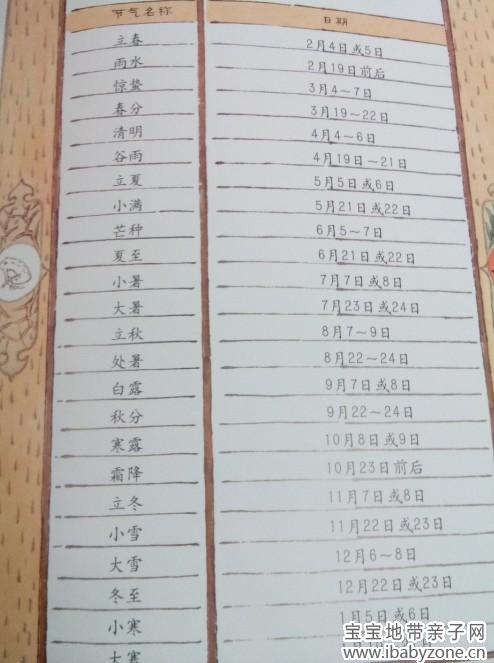 节气名称 日期
立春 2月4日或5日
雨水 2月19日前后
惊蛰 3月4～7日
春分 3月19～22日
清明 4月4～6日
谷雨 4月19日～21日
立夏 5月5日或6日
小满 5月21日或22日
芒种 6月5～7日
夏至 6月21日或22日
小暑 7月7日或8日
大暑 7月23日或24日
立秋 8月7～9日
处暑 8月22～24日
白露 9月7日或8日
秋分 9月22～24日
寒露 10月8日或9日
霜降 10月23日前后
立冬 11月7日或8日
小雪 11月22日或23日
大雪 12月6～8日
冬至 12月22日或23日
小寒 1月5日或6日
大寒
宝宝地带亲子网
www.ibabyzone.cn